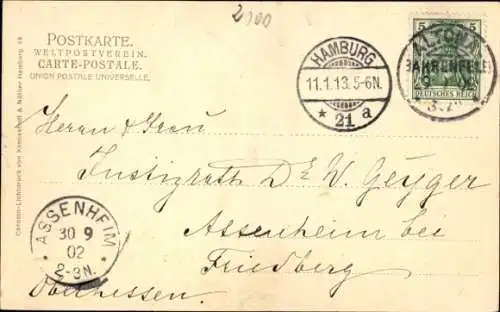 2,00
POSTKARTE.
WELTPOSTVEREIN.
CARTE-POSTALE.
UNION POSTALE UNIVERSELLE.
HAMBURG
11.1.13.5-6N.
* 21 a
5
DEUTSCHES REICH
ALTONA
BAHRENFELD
Herrn & Frau
Justizrath Dr W. Geyger
Assenheim bei
Friedberg
Oberhessen.
ASSENHEIM
30 9
02
* 2-3N. *
Chromo-Lichtdruck von Knackstedt & Näther Hamburg 19